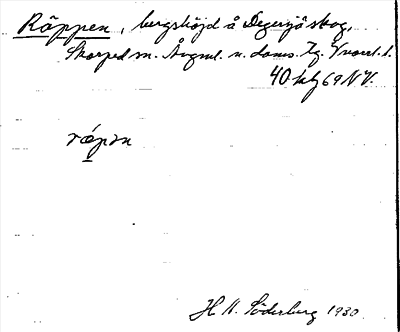 Räppen, bergshöjd å Degersjö skog,
Skorped sn. Ångml. n. doms. Tg. Y norrl. l.
40 kbl 69 NV.
räpən
H N. Söderberg 1930